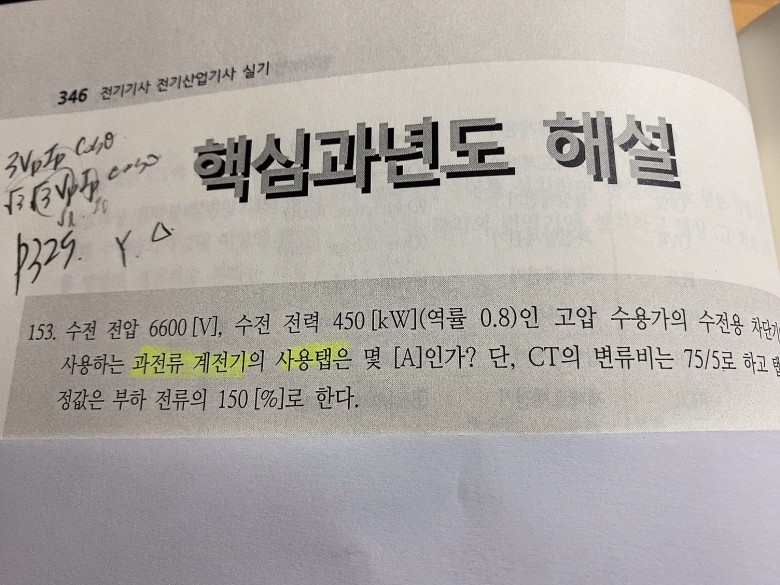 346 전기기사 전기산업기사 실기
3VpIp cosθ
√3 √3 VpIp cosθ
P325. Y. Δ
핵심과년도 해설
153. 수전 전압 6600 [V], 수전 전력 450 [kW](역률 0.8)인 고압 수용가의 수전용 차단기
사용하는 과전류 계전기의 사용탭은 몇 [A]인가? 단, CT의 변류비는 75/5로 하고 탭
정값은 부하 전류의 150 [%]로 한다.